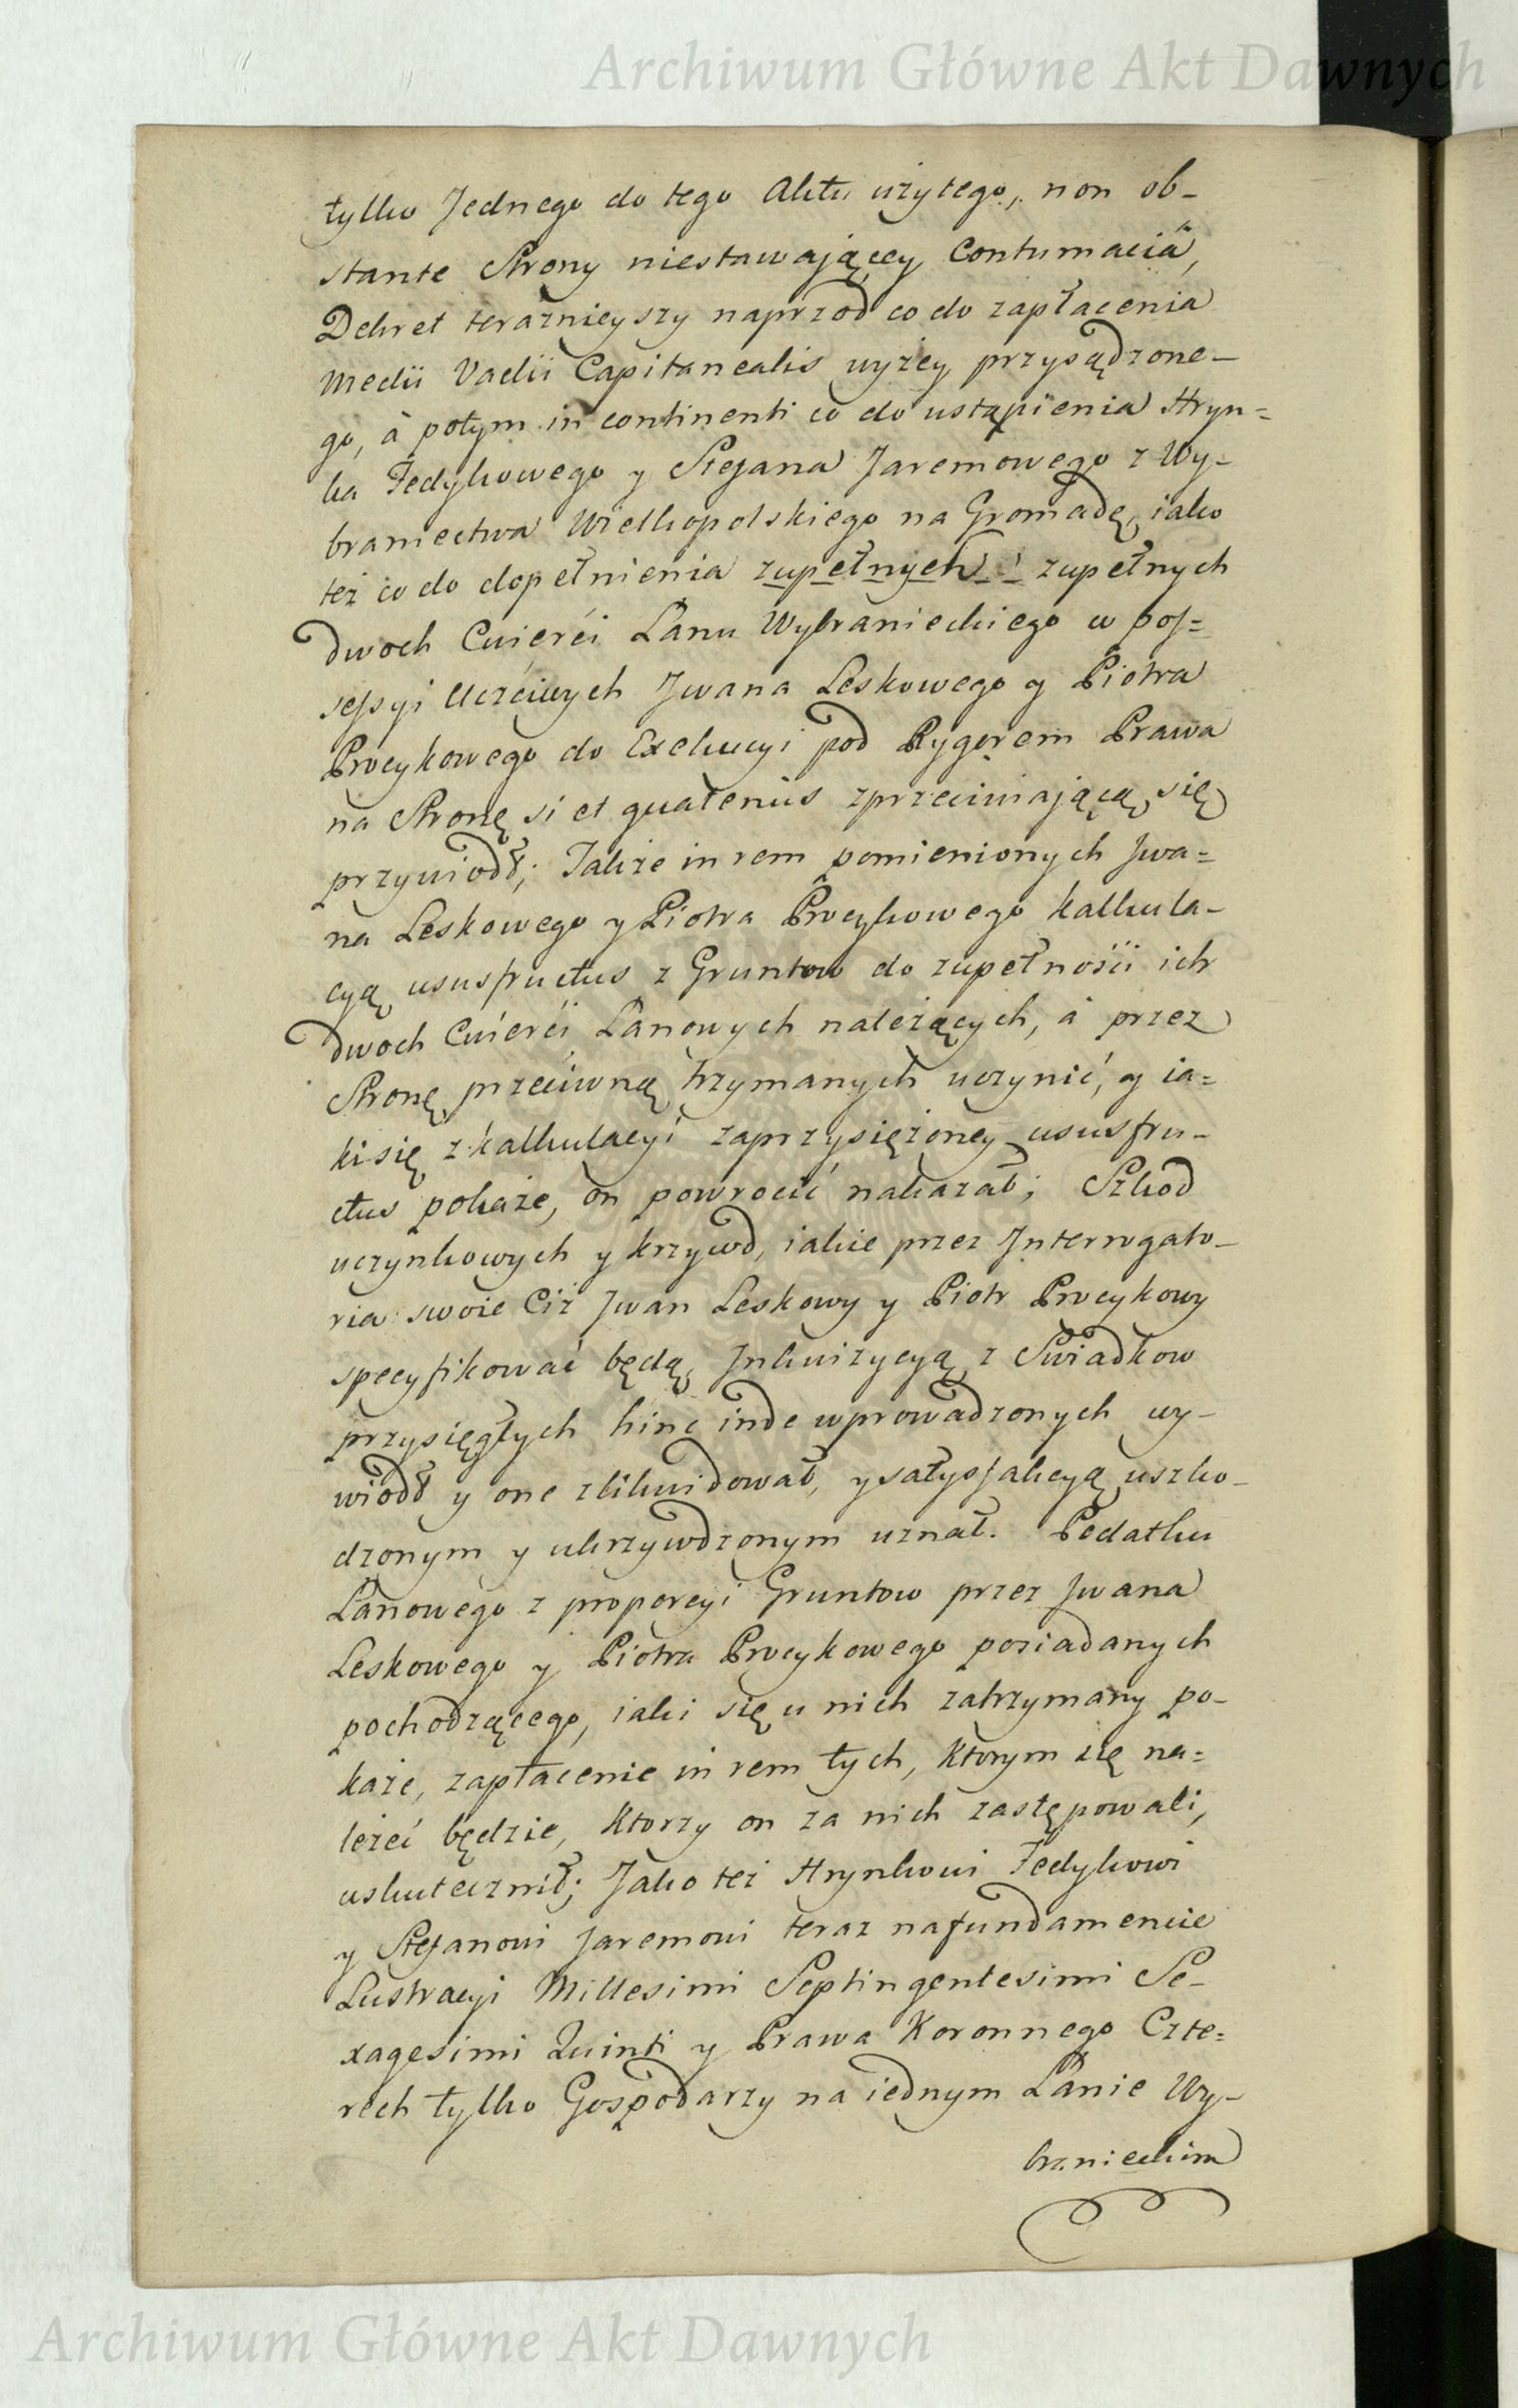 Archiwum Główne Akt Dawnych
tylko Jednego do tego Aktu użytego, non ob-
stante Strony niestawaiącey Contumaciâ,
Dekret teraznieyszy naprzod co do zapłacenia
Medii Vadii Capitanealis wyżey przysądzone-
go, à potym in continenti co do ustąpienia Hryn=
ka Fedykowego y Stefana Jaremowego z Wy-
braniectwa Wielkopolskiego na Gromadę, iako
też co do dopełnienia zupełnych zupełnych
dwoch Cwierci Lanu Wybranieckiego w pos=
sessyi Uczciwych Jwana Leskowego y Piotra
Procykowego do Exekucyi pod Rygorem Prawa
na Stronę si et quatenus zprzeciwiaiącą się
przywiodł; Także in rem pomienionych Jwa=
na Leskowego y Piotra Procykowego kalkula-
cyą ususfructus z Gruntow do zupełności ich
dwoch Cwierci Lanowych należących, à przez
Stronę przeciwną trzymanych uczynić, y ia=
ki się z kalkulacyi zaprzysiężoney ususfru-
ctus pokaże, on powrocić nakazał; Szkod
uczynkowych y krzywd, iakie przez Jnterrogato-
ria swoie Ciż Jwan Leskowy y Piotr Procykowy
specyfikować będą, Jnkwizycyą z Swiadkow
przysięgłych hinc inde wprowadzonych wy-
wiodł y one zlikwidował, y satysfakcyą uszko-
dzonym y ukrzywdzonym uznał. Podatku
Lanowego z proporcyi Gruntow przez Jwana
Leskowego y Piotra Procykowego posiadanych
pochodzącego, iaki się u nich zatrzymany po-
każe, zapłacenie in rem tych, ktorym się na=
leżeć będzie, ktorzy on za nich zastępowali,
uskutecznił; Jako też Hrynkowi Fedykowi
y Stefanowi Jaremowi teraz na fundamencie
Lustracyi Millesimi Septingentesimi Se-
xagesimi Quinti y Prawa Koronnego Czte=
rech tylko Gospodarzy na iednym Lanie Wy-
branieckim
Archiwum Główne Akt Dawnych